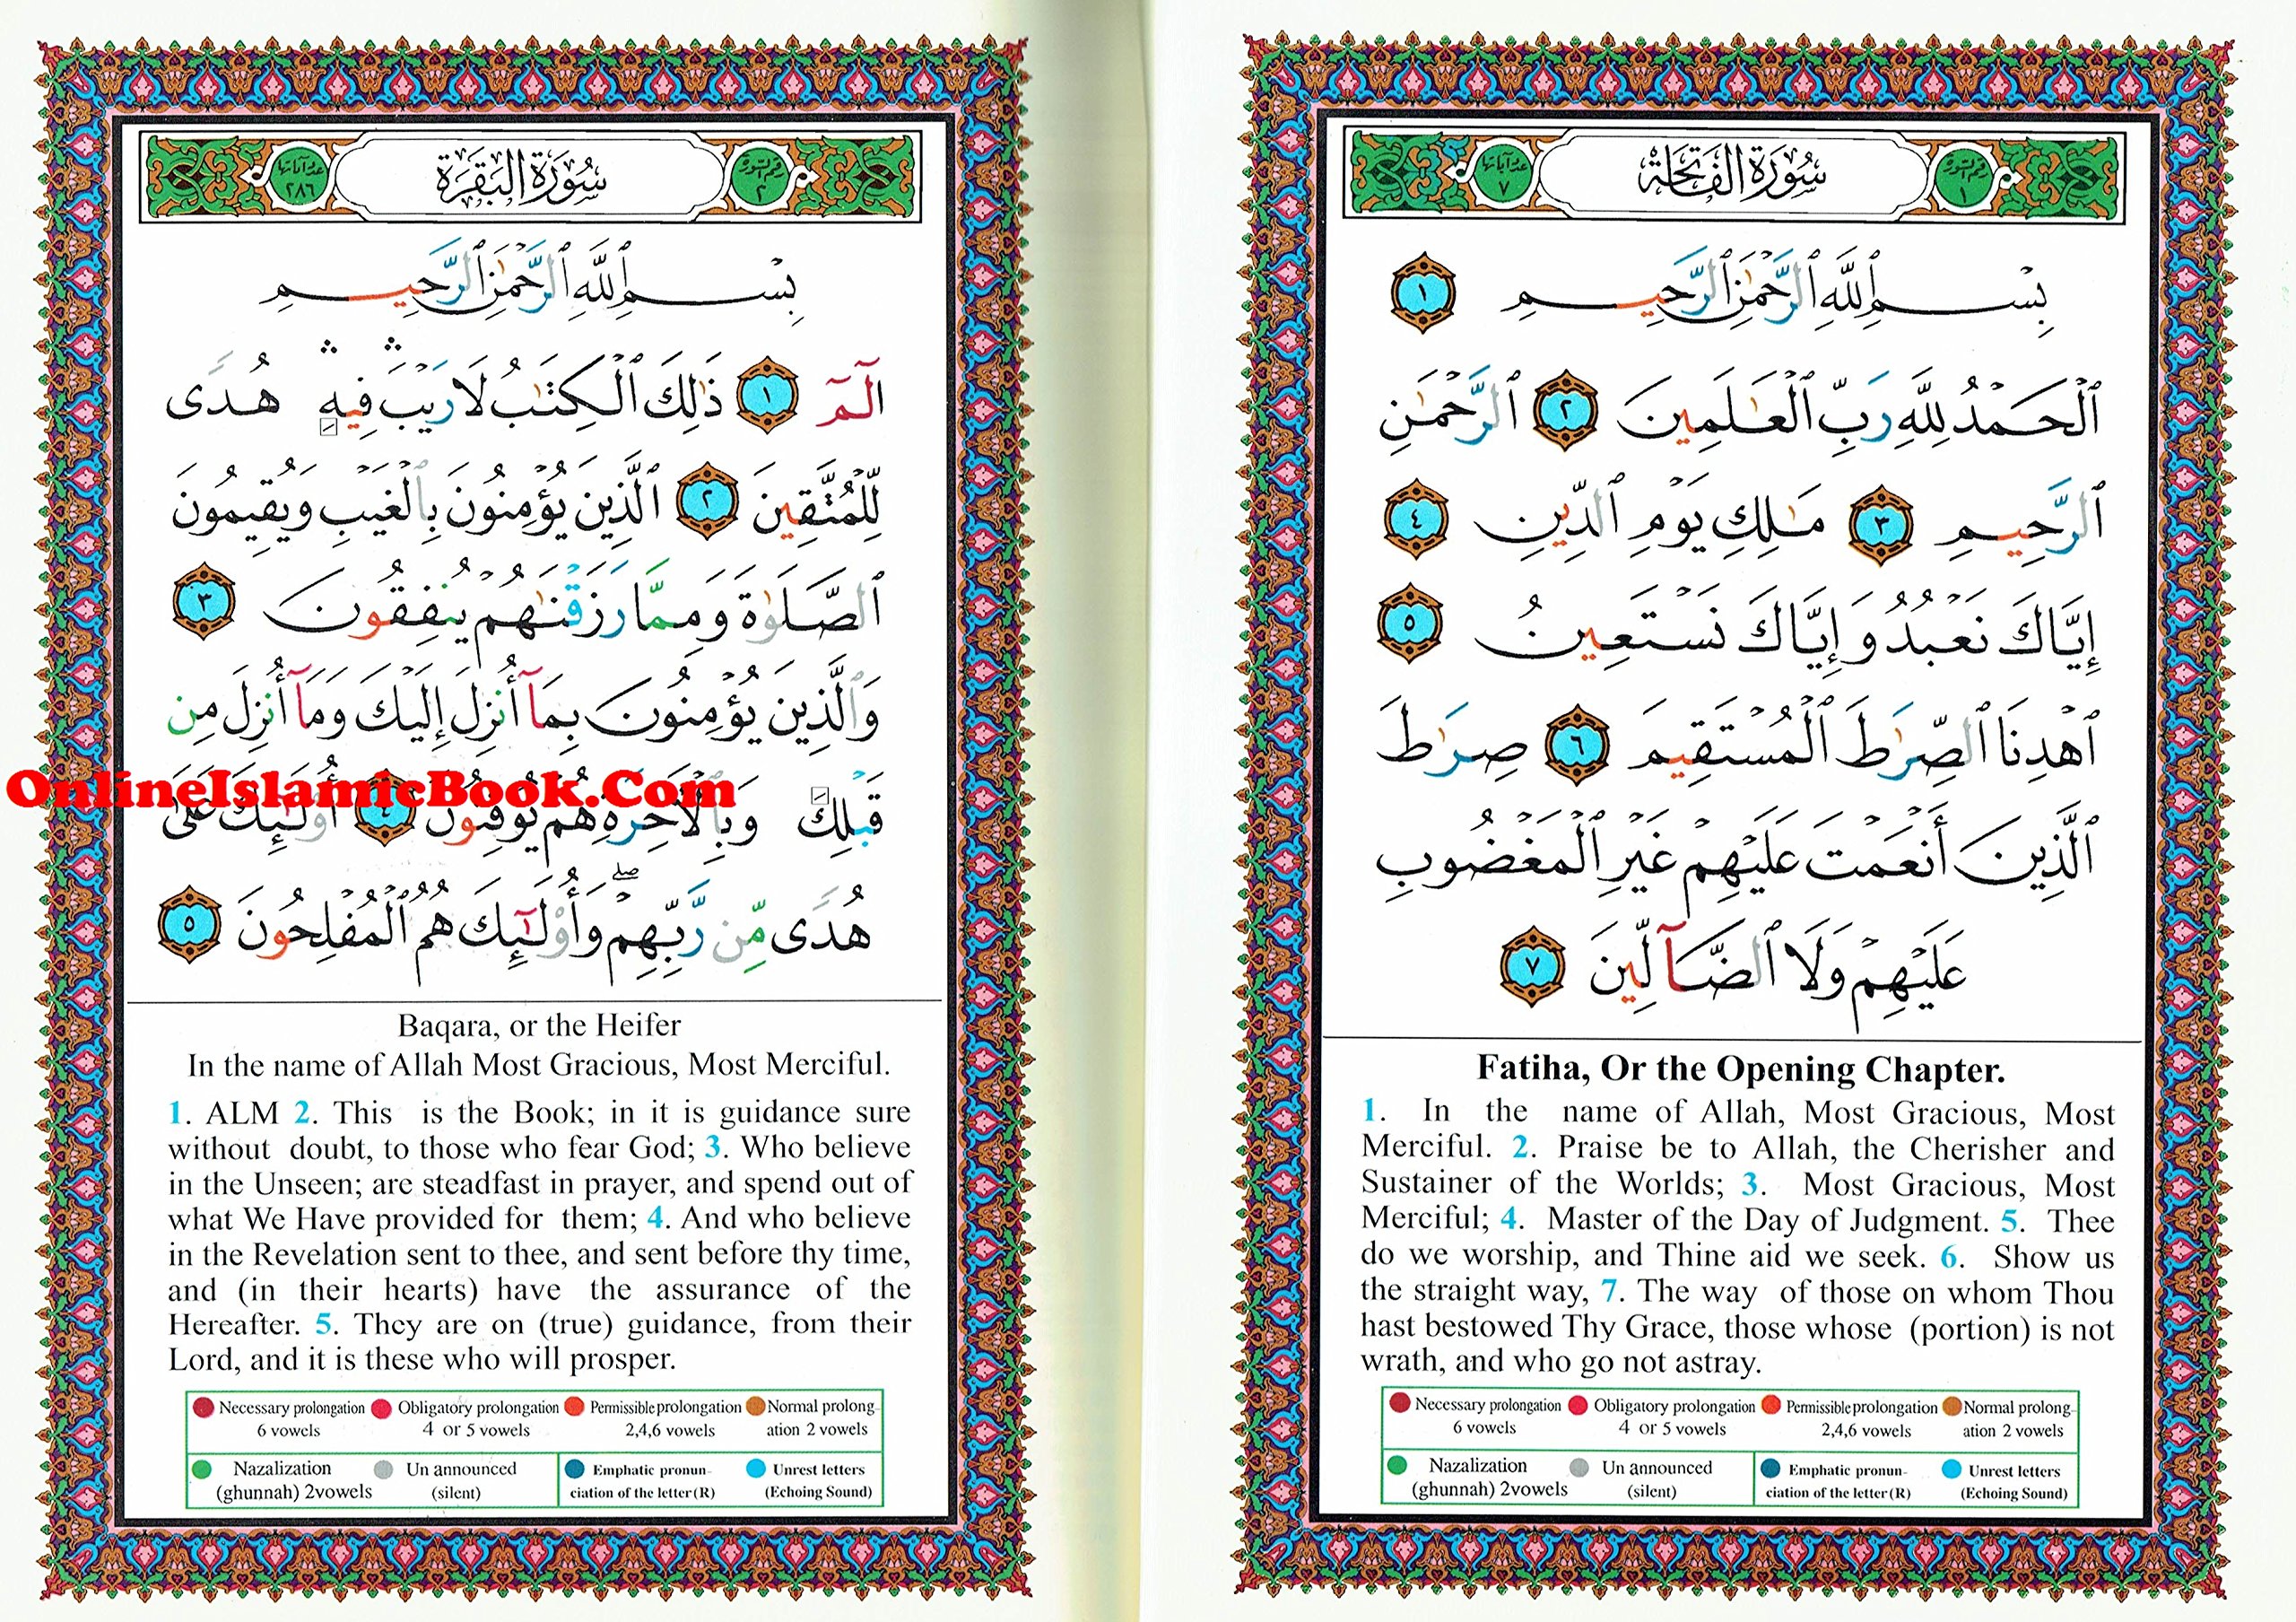 رقم السورة ١
سُورَةُ الفَاتِحَة
عدد آياتها ٧
بِسْمِ ٱللَّهِ ٱلرَّحْمَٰنِ ٱلرَّحِيمِ ١
ٱلْحَمْدُ لِلَّهِ رَبِّ ٱلْعَٰلَمِينَ ٢ ٱلرَّحْمَٰنِ
ٱلرَّحِيمِ ٣ مَٰلِكِ يَوْمِ ٱلدِّينِ ٤
إِيَّاكَ نَعْبُدُ وَإِيَّاكَ نَسْتَعِينُ ٥
ٱهْدِنَا ٱلصِّرَٰطَ ٱلْمُسْتَقِيمَ ٦ صِرَٰطَ
ٱلَّذِينَ أَنْعَمْتَ عَلَيْهِمْ غَيْرِ ٱلْمَغْضُوبِ
عَلَيْهِمْ وَلَا ٱلضَّآلِّينَ ٧
Fatiha, Or the Opening Chapter.
1. In the name of Allah, Most Gracious, Most
Merciful. 2. Praise be to Allah, the Cherisher and
Sustainer of the Worlds; 3. Most Gracious, Most
Merciful; 4. Master of the Day of Judgment. 5. Thee
do we worship, and Thine aid we seek. 6. Show us
the straight way, 7. The way of those on whom Thou
hast bestowed Thy Grace, those whose (portion) is not
wrath, and who go not astray.
Necessary prolongation 6 vowels
Obligatory prolongation 4 or 5 vowels
Permissible prolongation 2,4,6 vowels
Normal prolong-ation 2 vowels
Nazalization (ghunnah) 2vowels
Un announced (silent)
Emphatic pronun-ciation of the letter (R)
Unrest letters (Echoing Sound)
رقم السورة ٢
سُورَةُ البَقَرَة
عدد آياتها ٢٨٦
بِسْمِ ٱللَّهِ ٱلرَّحْمَٰنِ ٱلرَّحِيمِ
الٓمٓ ١ ذَٰلِكَ ٱلْكِتَٰبُ لَا رَيْبَ ۛ فِيهِ ۛ هُدًى
لِّلْمُتَّقِينَ ٢ ٱلَّذِينَ يُؤْمِنُونَ بِٱلْغَيْبِ وَيُقِيمُونَ
ٱلصَّلَوٰةَ وَمِمَّا رَزَقْنَٰهُمْ يُنفِقُونَ ٣
وَٱلَّذِينَ يُؤْمِنُونَ بِمَآ أُنزِلَ إِلَيْكَ وَمَآ أُنزِلَ مِن
قَبْلِكَ وَبِٱلْآخِرَةِ هُمْ يُوقِنُونَ ٤ أُو۟لَٰٓئِكَ عَلَىٰ
هُدًى مِّن رَّبِّهِمْ ۖ وَأُو۟لَٰٓئِكَ هُمُ ٱلْمُفْلِحُونَ ٥
OnlineIslamicBook.Com
Baqara, or the Heifer
In the name of Allah Most Gracious, Most Merciful.
1. ALM 2. This is the Book; in it is guidance sure
without doubt, to those who fear God; 3. Who believe
in the Unseen; are steadfast in prayer, and spend out of
what We Have provided for them; 4. And who believe
in the Revelation sent to thee, and sent before thy time,
and (in their hearts) have the assurance of the
Hereafter. 5. They are on (true) guidance, from their
Lord, and it is these who will prosper.
Necessary prolongation 6 vowels
Obligatory prolongation 4 or 5 vowels
Permissible prolongation 2,4,6 vowels
Normal prolong-ation 2 vowels
Nazalization (ghunnah) 2vowels
Un announced (silent)
Emphatic pronun-ciation of the letter (R)
Unrest letters (Echoing Sound)